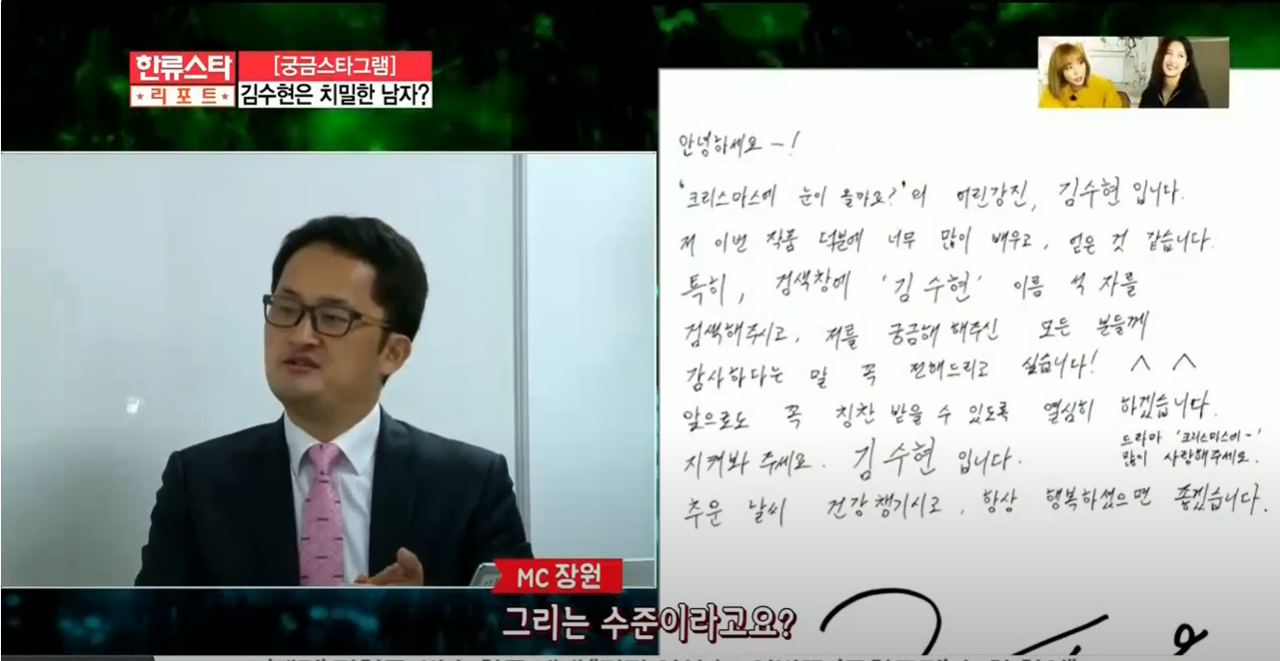 한류스타
★리포트★
[궁금스타그램]
김수현은 치밀한 남자?
안녕하세요 ~!
'크리스마스에 눈이 올까요?'의 어린강진, 김수현 입니다.
저 이번 작품 덕분에 너무 많이 배우고, 얻은 것 같습니다.
특히, 검색창에 '김수현' 이름 석 자를
검색해주시고, 저를 궁금해 해주신 모든 분들께
감사하다는 말 꼭 전해드리고 싶습니다! ^ ^
앞으로도 꼭 칭찬 받을 수 있도록 열심히 하겠습니다.
지켜봐 주세요. 김수현 입니다.
드라마 '크리스마스에~'
많이 사랑해주세요.
추운 날씨 건강챙기시고, 항상 행복하셨으면 좋겠습니다.
MC 장원
그리는 수준이라고요?